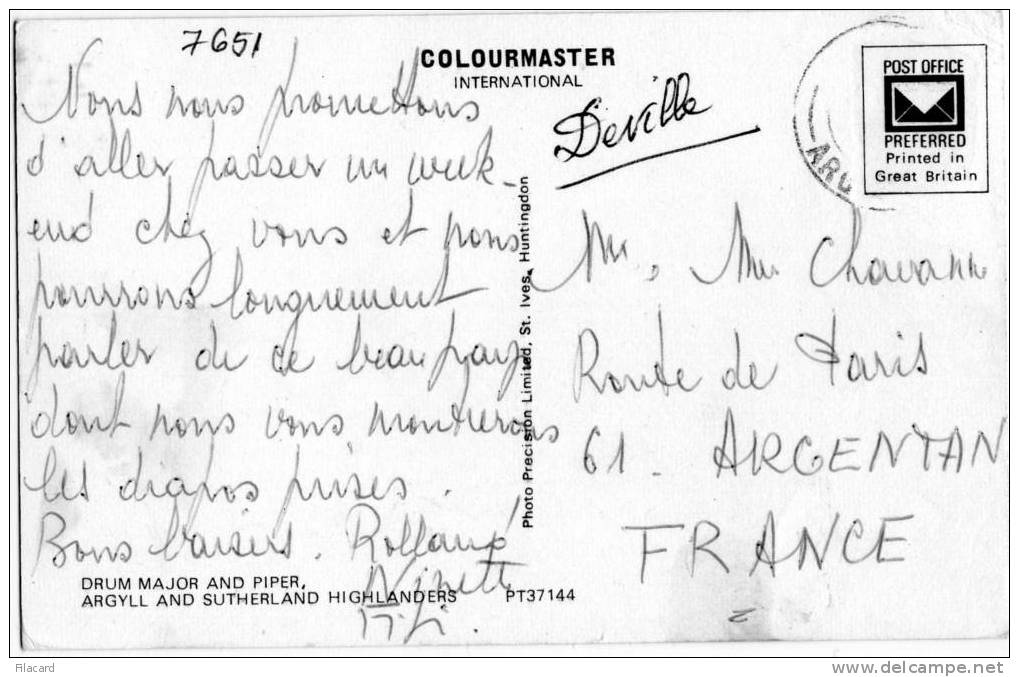 7651
Nous nous promettons
d'aller passer un week-
end chez vous et nous
pourrons longuement
parler de ce beau pays
dont nous vous montrerons
les diapos prises.
Bons baisers. Rolland
Ninette
COLOURMASTER
INTERNATIONAL
Deville
POST OFFICE
PREFERRED
Printed in
Great Britain
ARG
Mr, Mme Chavanne
Route de Paris
61 - ARGENTAN
FRANCE
Photo Precision Limited, St. Ives, Huntingdon
DRUM MAJOR AND PIPER,
ARGYLL AND SUTHERLAND HIGHLANDERS PT37144
Filacard
delcampe.net